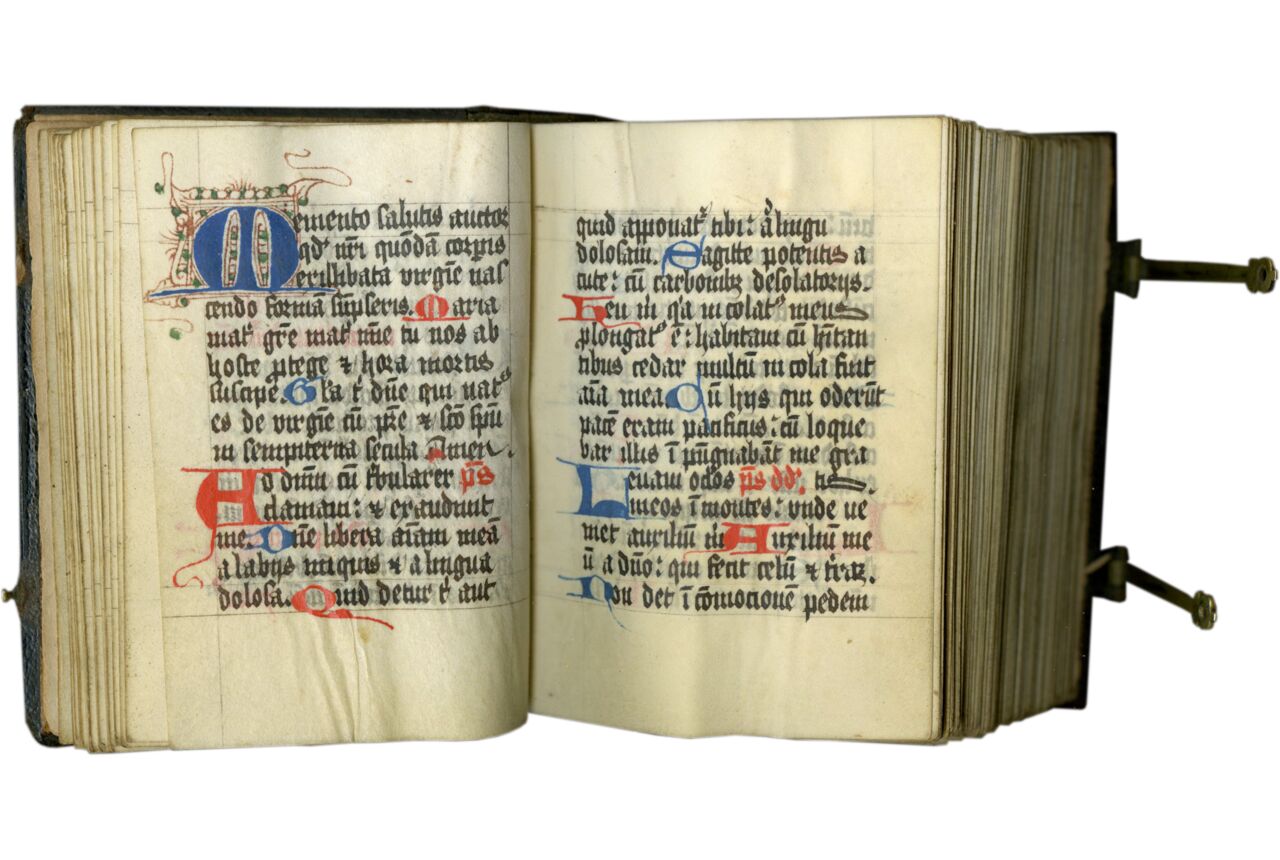 Memento salutis auctor
qd' nr̄i quōdā corp̄is
ex illibata virgīe nas
cendo formā sūpseris. Maria
mat᷑ grē mat᷑ mīe tu nos ab
hoste ꝓtege ⁊ hora mortis
suscipe. Gl'a t᷑ dn̄e qui nat᷒
es de virgīe cū p̄re ⁊ sc̄o sp̄u
in sempiterna secula Amen.
Ad dnm̄ cū t'bularer p̄s
clamaui: ⁊ exaudiuit
me. Dn̄e libera aīam meā
a labijs iniquis ⁊ a lingua
dolosa. Quid detur t᷑ aut
quid apponat᷑ tibi: ad lingu
dolosam. Sagitte potentis a
cute: cū carbonibꝫ desolatorijs.
Heu m̄ q'a incolat᷒ meus
plongat᷒ ē: habitaui cū hītan
tibus cedar multū incola fuit
aīa mea Cū hijs qui oderūt
pacē eram pacificus: cū loque
bar illis īpūgnabāt me gra
Leuaui oc̄los p̄s dd'. tis.
meos ī montes: unde ue
niet auxiliū m̄ Auxiliū me
ū a dn̄o: qui fecit celū ⁊ t'raꝫ.
Non det ī cōmocionē pedem